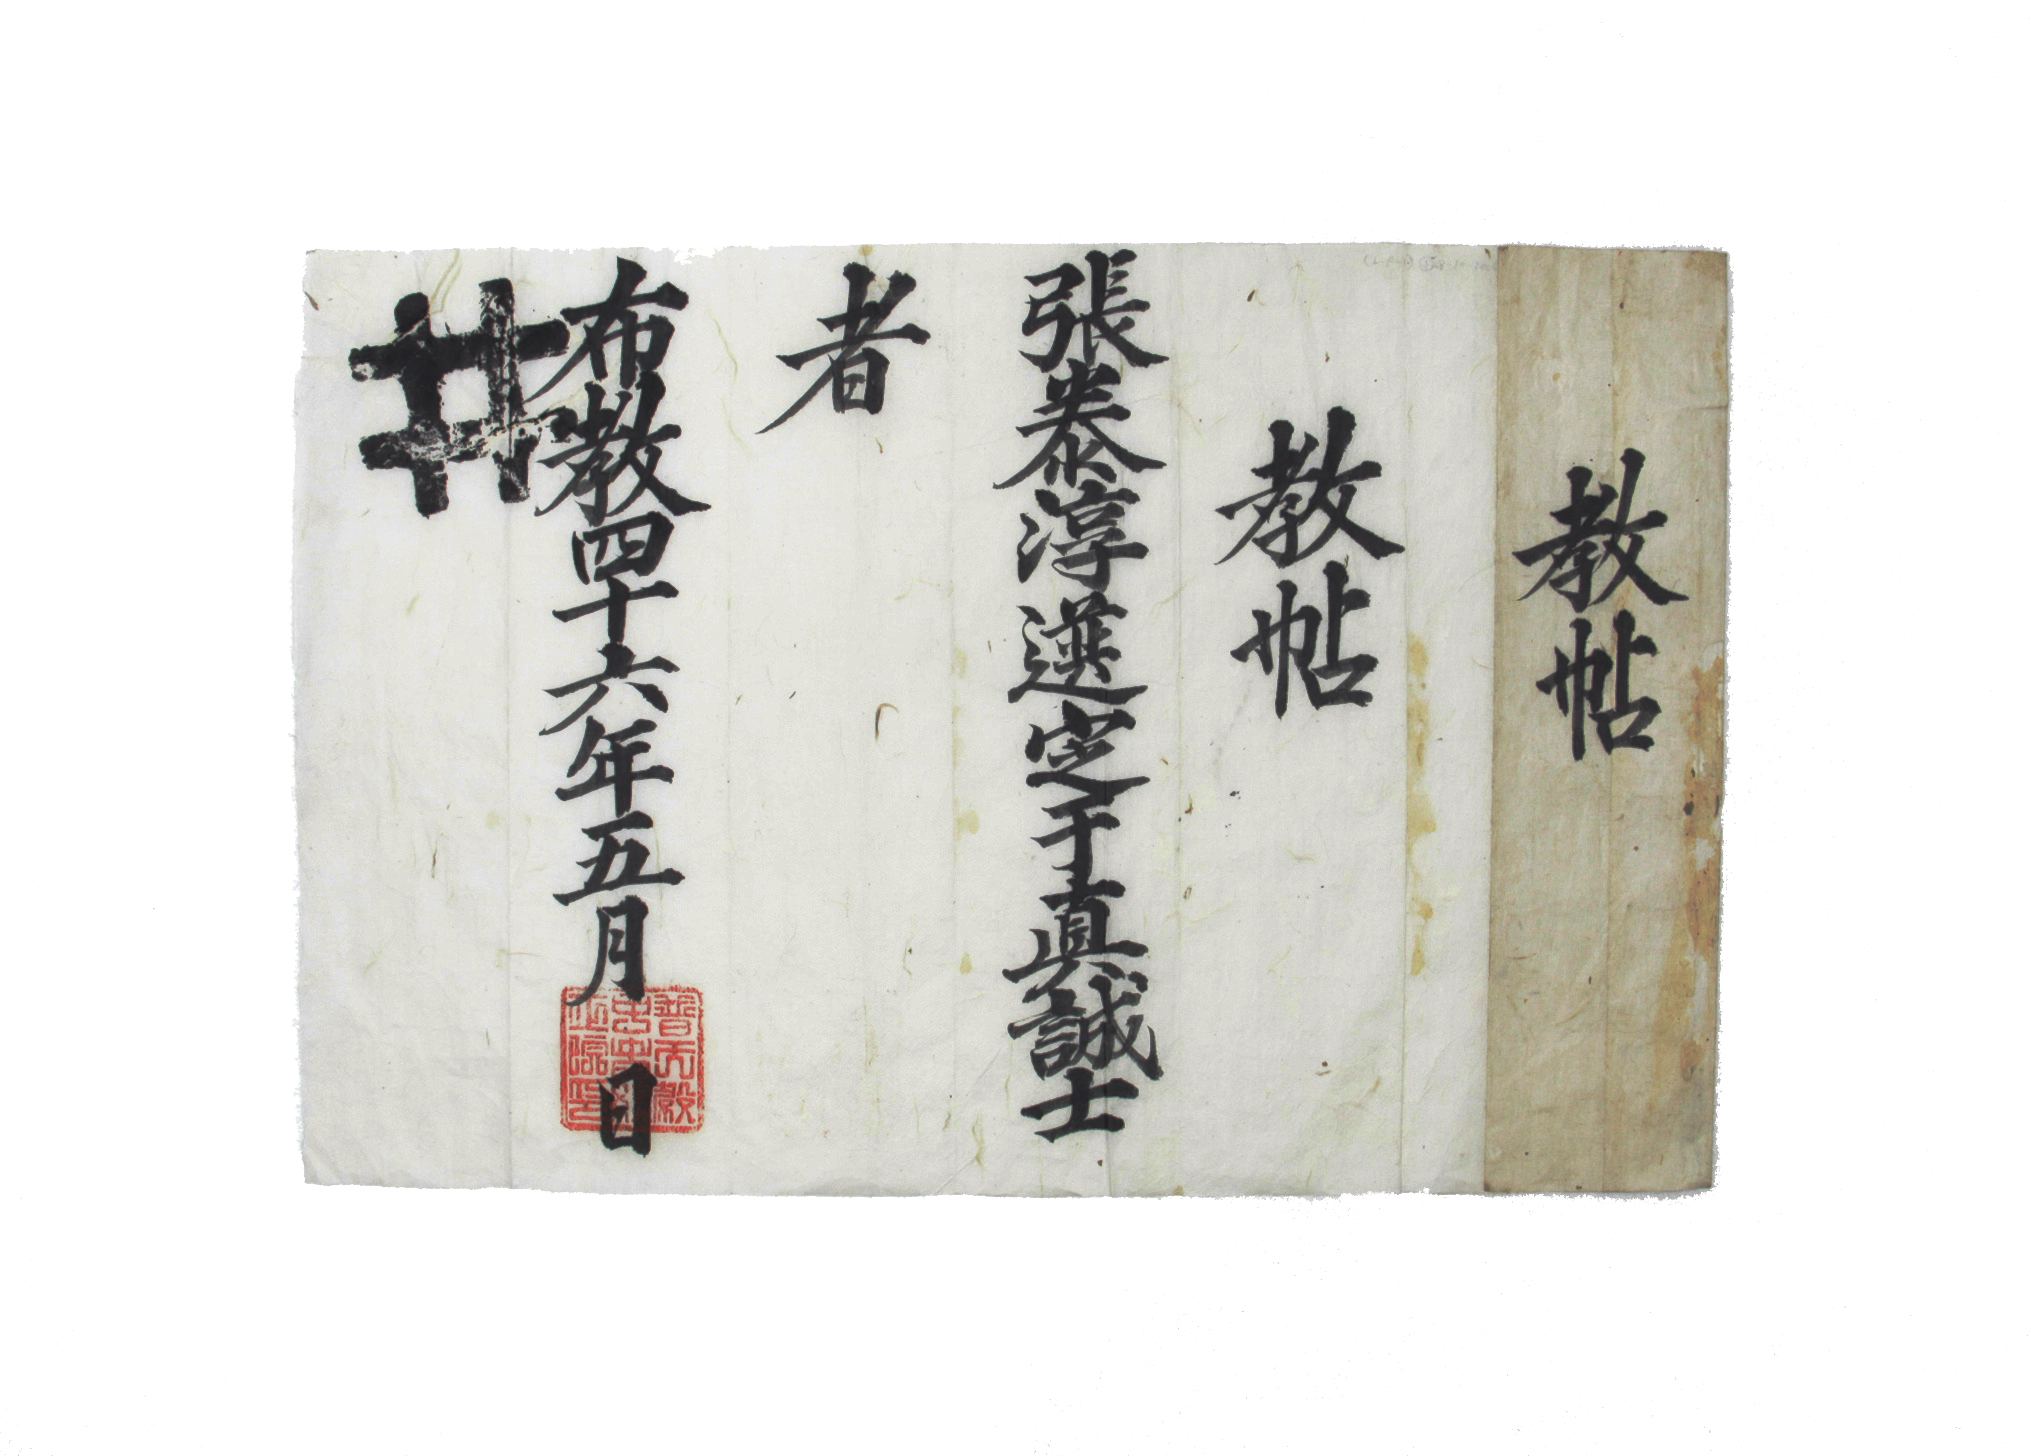 教帖
教帖
張泰淳選定于眞誠士
者
布教四十六年五月 日